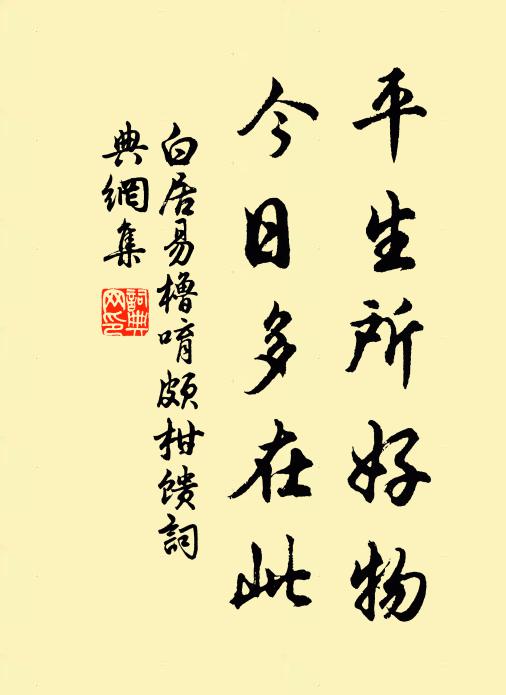 平生所好物
今日多在此
白居易櫓唷頗柑馈詞
典網集
詞典网印